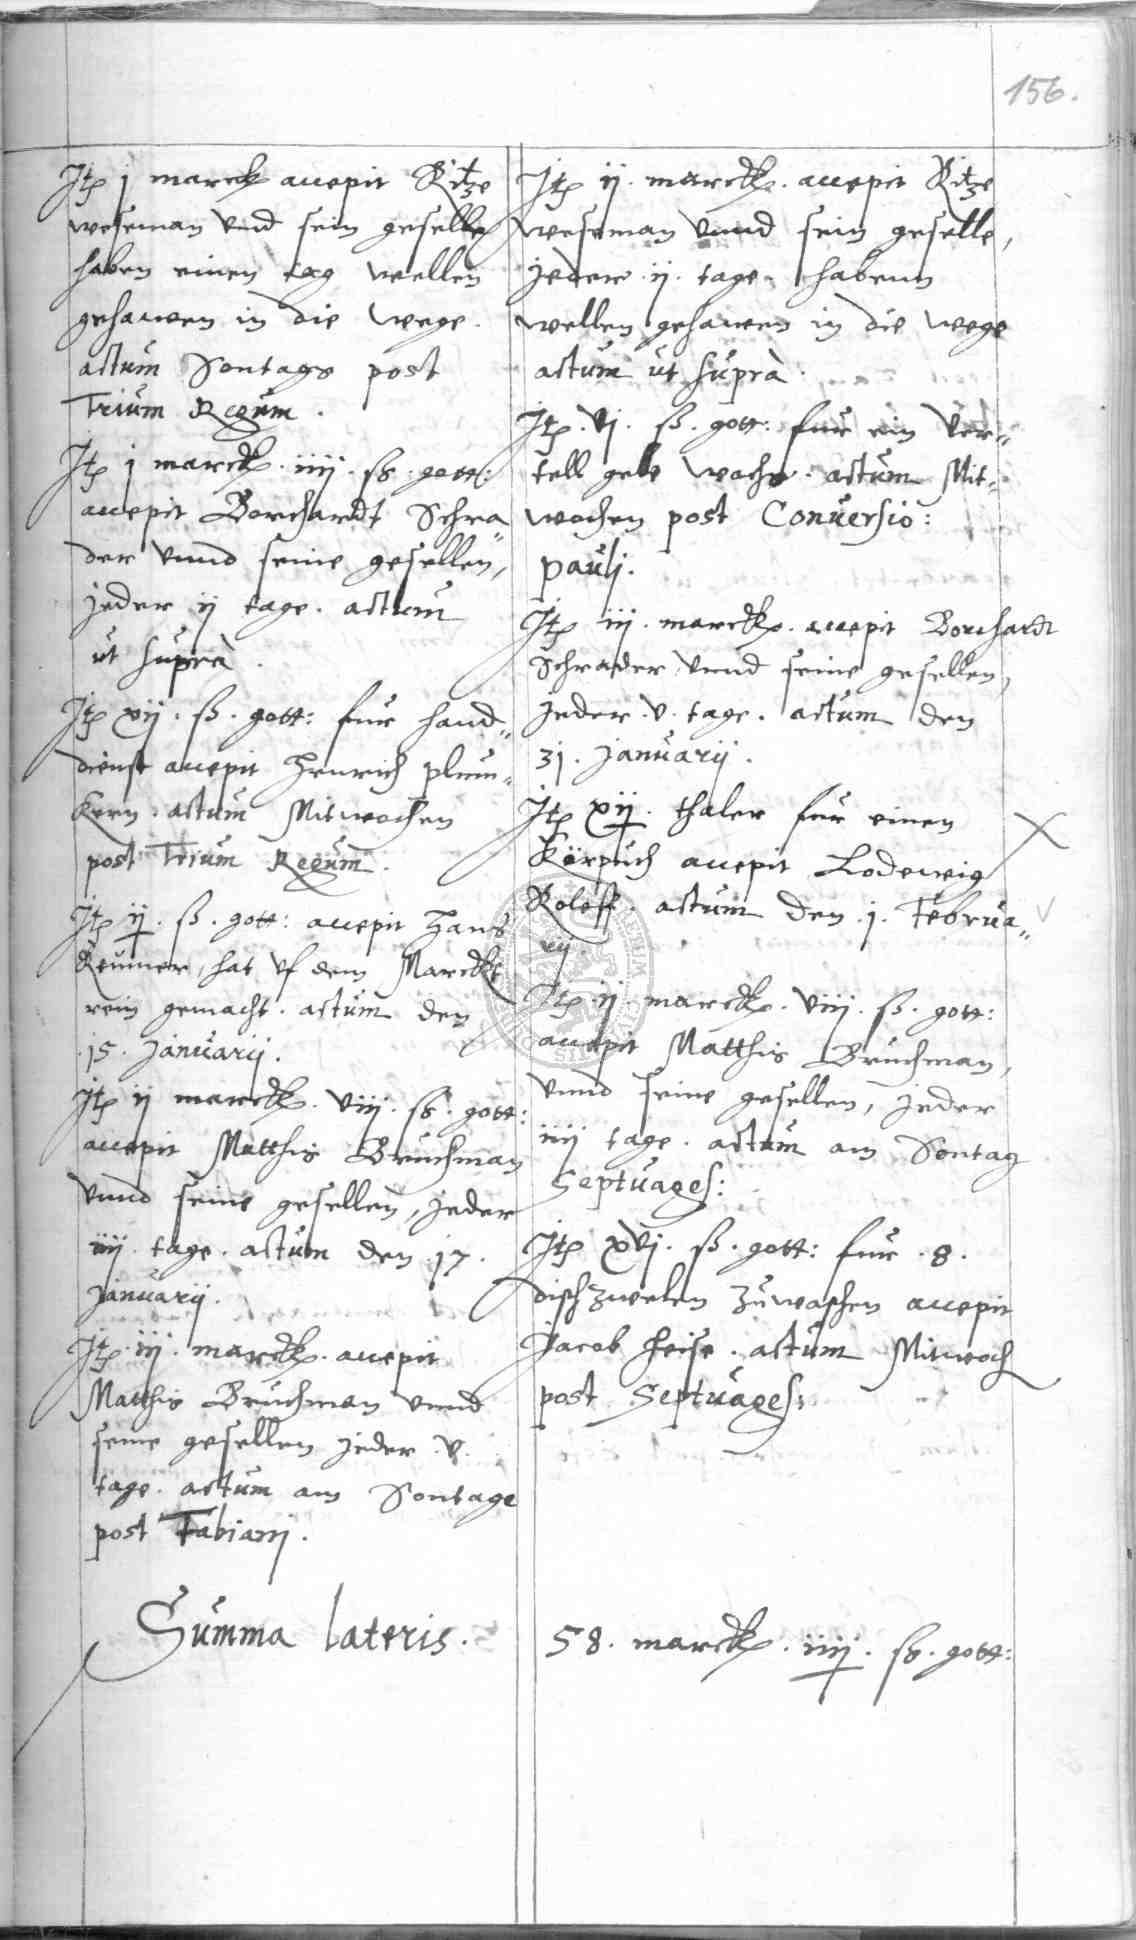 156.
Itz j marck accepit Ritze
weseman vnd sein geselle
haben einen tag wellen
gehawen in die wege.
actum Sontags post
Trium Regum.
Itz j marck. iiij. ß. gott:
accepit Borchardt Schra„
der vnnd seine gesellen,
jeder ij tage. actum
ut supra.
Itz xij. ß. gott: fur hand„
dienst accepit Henrich plum„
kern. actum Mitwochen
post Trium Regum.
Itz ij. ß. gott: accepit Hans
Reumer, hat vf dem Marckt
rein gemacht. actum den
.15. Januarij.
Itz ij marck. viij. ß. gott:
accepit Matthis Bruchman
vnnd seine gesellen, jeder
iiij. tage. actum den .17.
Januarij.
Itz. iij. marck. accepit
Matthis Bruchman vnnd
seine gesellen jeder .v.
tage. actum am Sontage
post Fabianj.
Itz ij. marck. accepit Ritze
weseman vnnd sein geselle,
jeder .ij. tage. habenn
wellen gehawen in die wege
actum ut suprà.
Itz. vj. ß. gott: fur ein ver„
tell gele wachs. actum Mit„
wochen post Conuersio:
paulj.
Itz iij. marck. accepit Borchardt
Schrader vnnd seine gesellen,
Jeder .v. tage. actum den
31. Januarij.
Itz xij. thaler fur einen
Körpuch accepit Lodewig
Roloff. actum den .1. Februa„
rij.
Itz. ij. marck. viij. ß. gott:
accepit Matthis Bruchman,
vnnd seine gesellen, jeder
iiij tage. actum am Sontag
Septuages:
Itz xvj. ß. gott: fur .8.
dischzwelen zuwaschen accepit
Jacob Heise. actum Mitwoch
post Septuages:
Summa lateris. 58. marck. iiij. ß. gott: